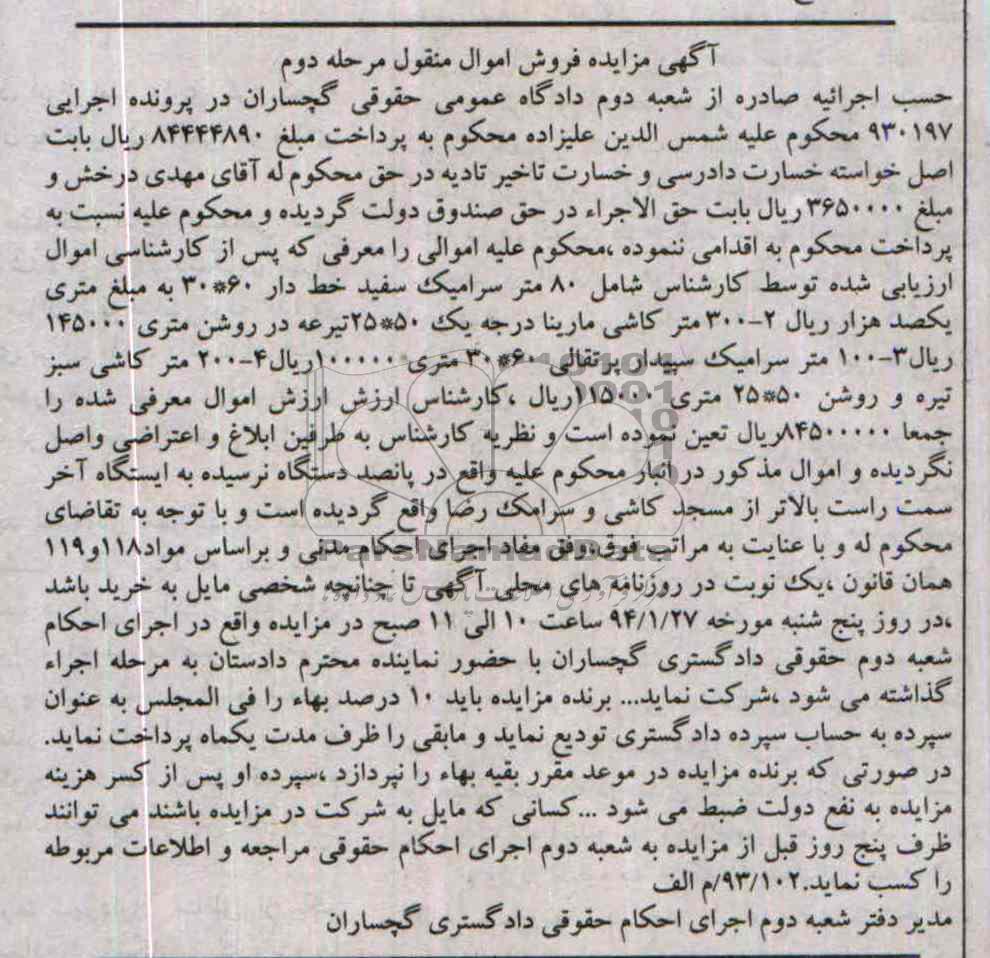 آگهی مزایده فروش اموال منقول مرحله دوم
حسب اجرائیه صادره از شعبه دوم دادگاه عمومی حقوقی گچساران در پرونده اجرایی
۹۳۰۱۹۷ محکوم علیه شمس الدین علیزاده محکوم به پرداخت مبلغ ۸۴۴۴۴۸۹۰ ریال بابت
اصل خواسته خسارت دادرسی و خسارت تاخیر تادیه در حق محکوم له آقای مهدی درخش و
مبلغ ۳۶۵۰۰۰۰ ریال بابت حق الاجراء در حق صندوق دولت گردیده و محکوم علیه نسبت به
پرداخت محکوم به اقدامی ننموده ،محکوم علیه اموالی را معرفی که پس از کارشناسی اموال
ارزیابی شده توسط کارشناس شامل ۸۰ متر سرامیک سفید خط دار ۶۰*۳۰ به مبلغ متری
یکصد هزار ریال ۲-۳۰۰ متر کاشی مارینا درجه یک ۵۰*۲۵تیرعه در روشن متری ۱۴۵۰۰۰
ریال۳-۱۰۰ متر سرامیک سپیدار پرتقالی ۶۰*۳۰ متری ۱۰۰۰۰۰۰ریال۴-۲۰۰ متر کاشی سبز
تیره و روشن ۵۰*۲۵ متری ۱۱۵۰۰۰ریال ،کارشناس ارزش ارزش اموال معرفی شده را
جمعا ۸۴۵۰۰۰۰۰ریال تعین نموده است و نظریه کارشناس به طرفین ابلاغ و اعتراضی واصل
نگردیده و اموال مذکور در انبار محکوم علیه واقع در پانصد دستگاه نرسیده به ایستگاه آخر
سمت راست بالاتر از مسجد کاشی و سرامکک رضا واقع گردیده است و با توجه به تقاضای
محکوم له و با عنایت به مراتب فوق،وفق مفاد اجرای احکام مدنی و براساس مواد۱۱۸و۱۱۹
همان قانون ،یک نوبت در روزنامه های محلی آگهی تا چنانچه شخصی مایل به خرید باشد
،در روز پنج شنبه مورخه ۹۴/۱/۲۷ ساعت ۱۰ الی ۱۱ صبح در مزایده واقع در اجرای احکام
شعبه دوم حقوقی دادگستری گچساران با حضور نماینده محترم دادستان به مرحله اجراء
گذاشته می شود ،شرکت نماید... برنده مزایده باید ۱۰ درصد بهاء را فی المجلس به عنوان
سپرده به حساب سپرده دادگستری تودیع نماید و مابقی را ظرف مدت یکماه پرداخت نماید.
در صورتی که برنده مزایده در موعد مقرر بقیه بهاء را نپردازد ،سپرده او پس از کسر هزینه
مزایده به نفع دولت ضبط می شود ...کسانی که مایل به شرکت در مزایده باشند می توانند
ظرف پنج روز قبل از مزایده به شعبه دوم اجرای احکام حقوقی مراجعه و اطلاعات مربوطه
را کسب نماید.۹۳/۱۰۲/م الف
مدیر دفتر شعبه دوم اجرای احکام حقوقی دادگستری گچساران
ParsNamadData